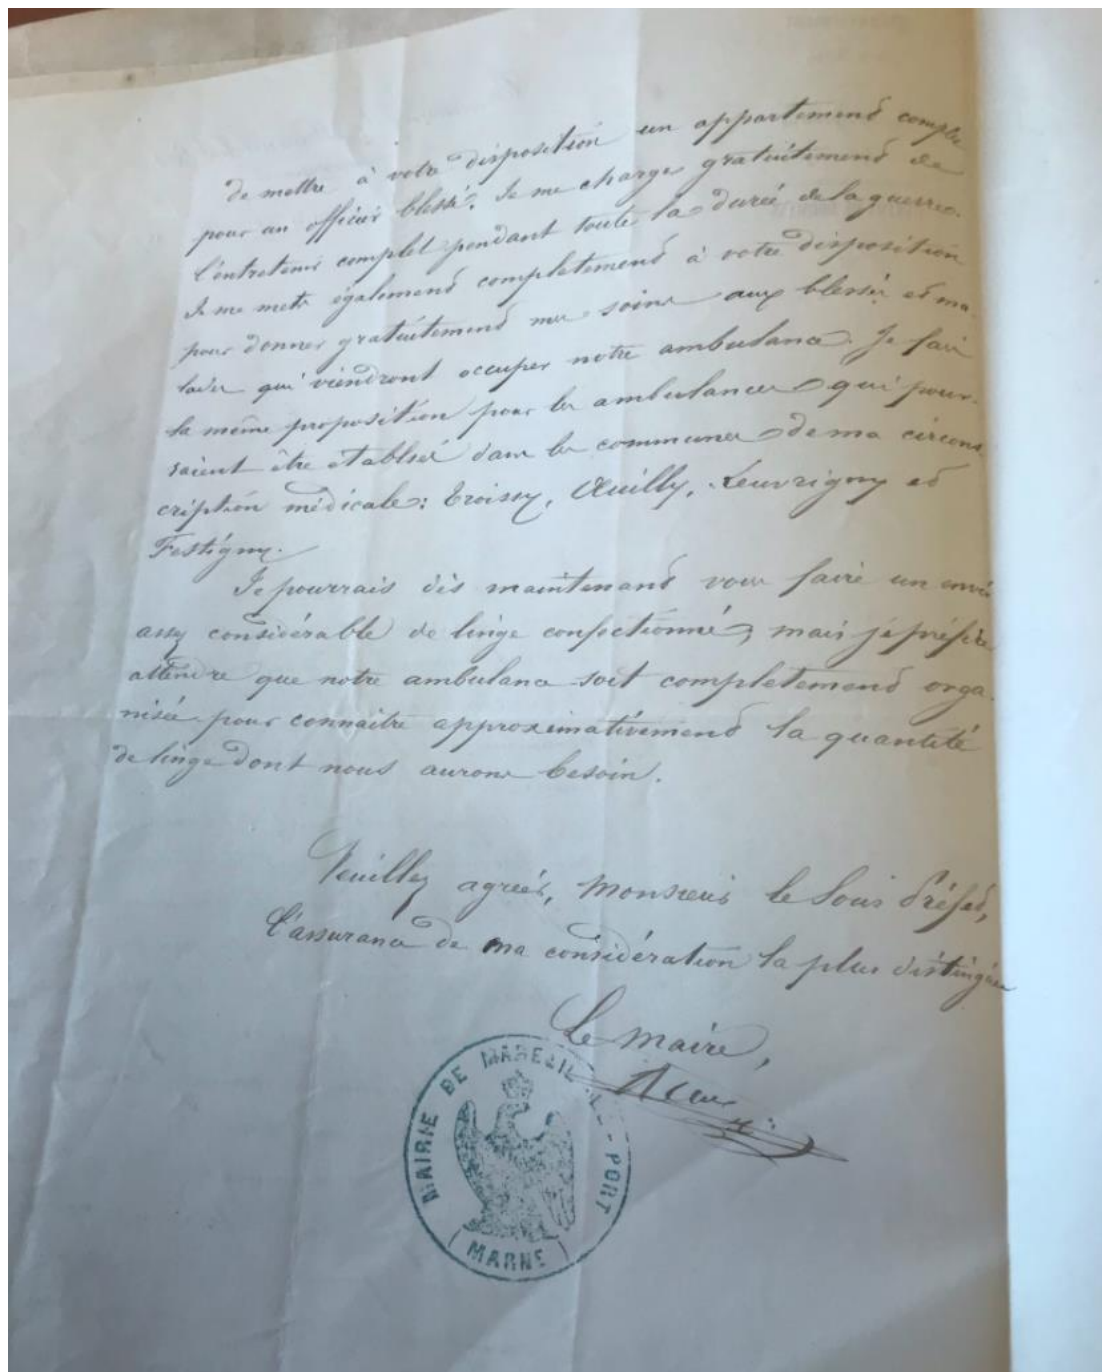 de mettre à votre disposition un appartement complet
pour un officier blessé. Je me charge gratuitement de
l'entretenir complet pendant toute la durée de la guerre.
Je me mets également completement à votre disposition
pour donner gratuitement mes soins aux blessés et ma-
lades qui viendront occuper notre ambulance. Je fais
la même proposition pour les ambulances qui pour-
raient être établies dans les communes de ma circons-
cription médicale: Troissy, Œuilly, Leuvrigny et
Festigny.
Je pourrais dès maintenant vous faire un envoi
assez considérable de linge confectionné, mais je préfère
attendre que notre ambulance soit completement orga-
nisée pour connaitre approximativement la quantité
de linge dont nous aurons besoin.
Veuillez agréer, Monsieur le Sous Préfet,
l'assurance de ma considération la plus distinguée
Le Maire,
MAIRIE DE MAREUIL-LE-PORT
(MARNE)